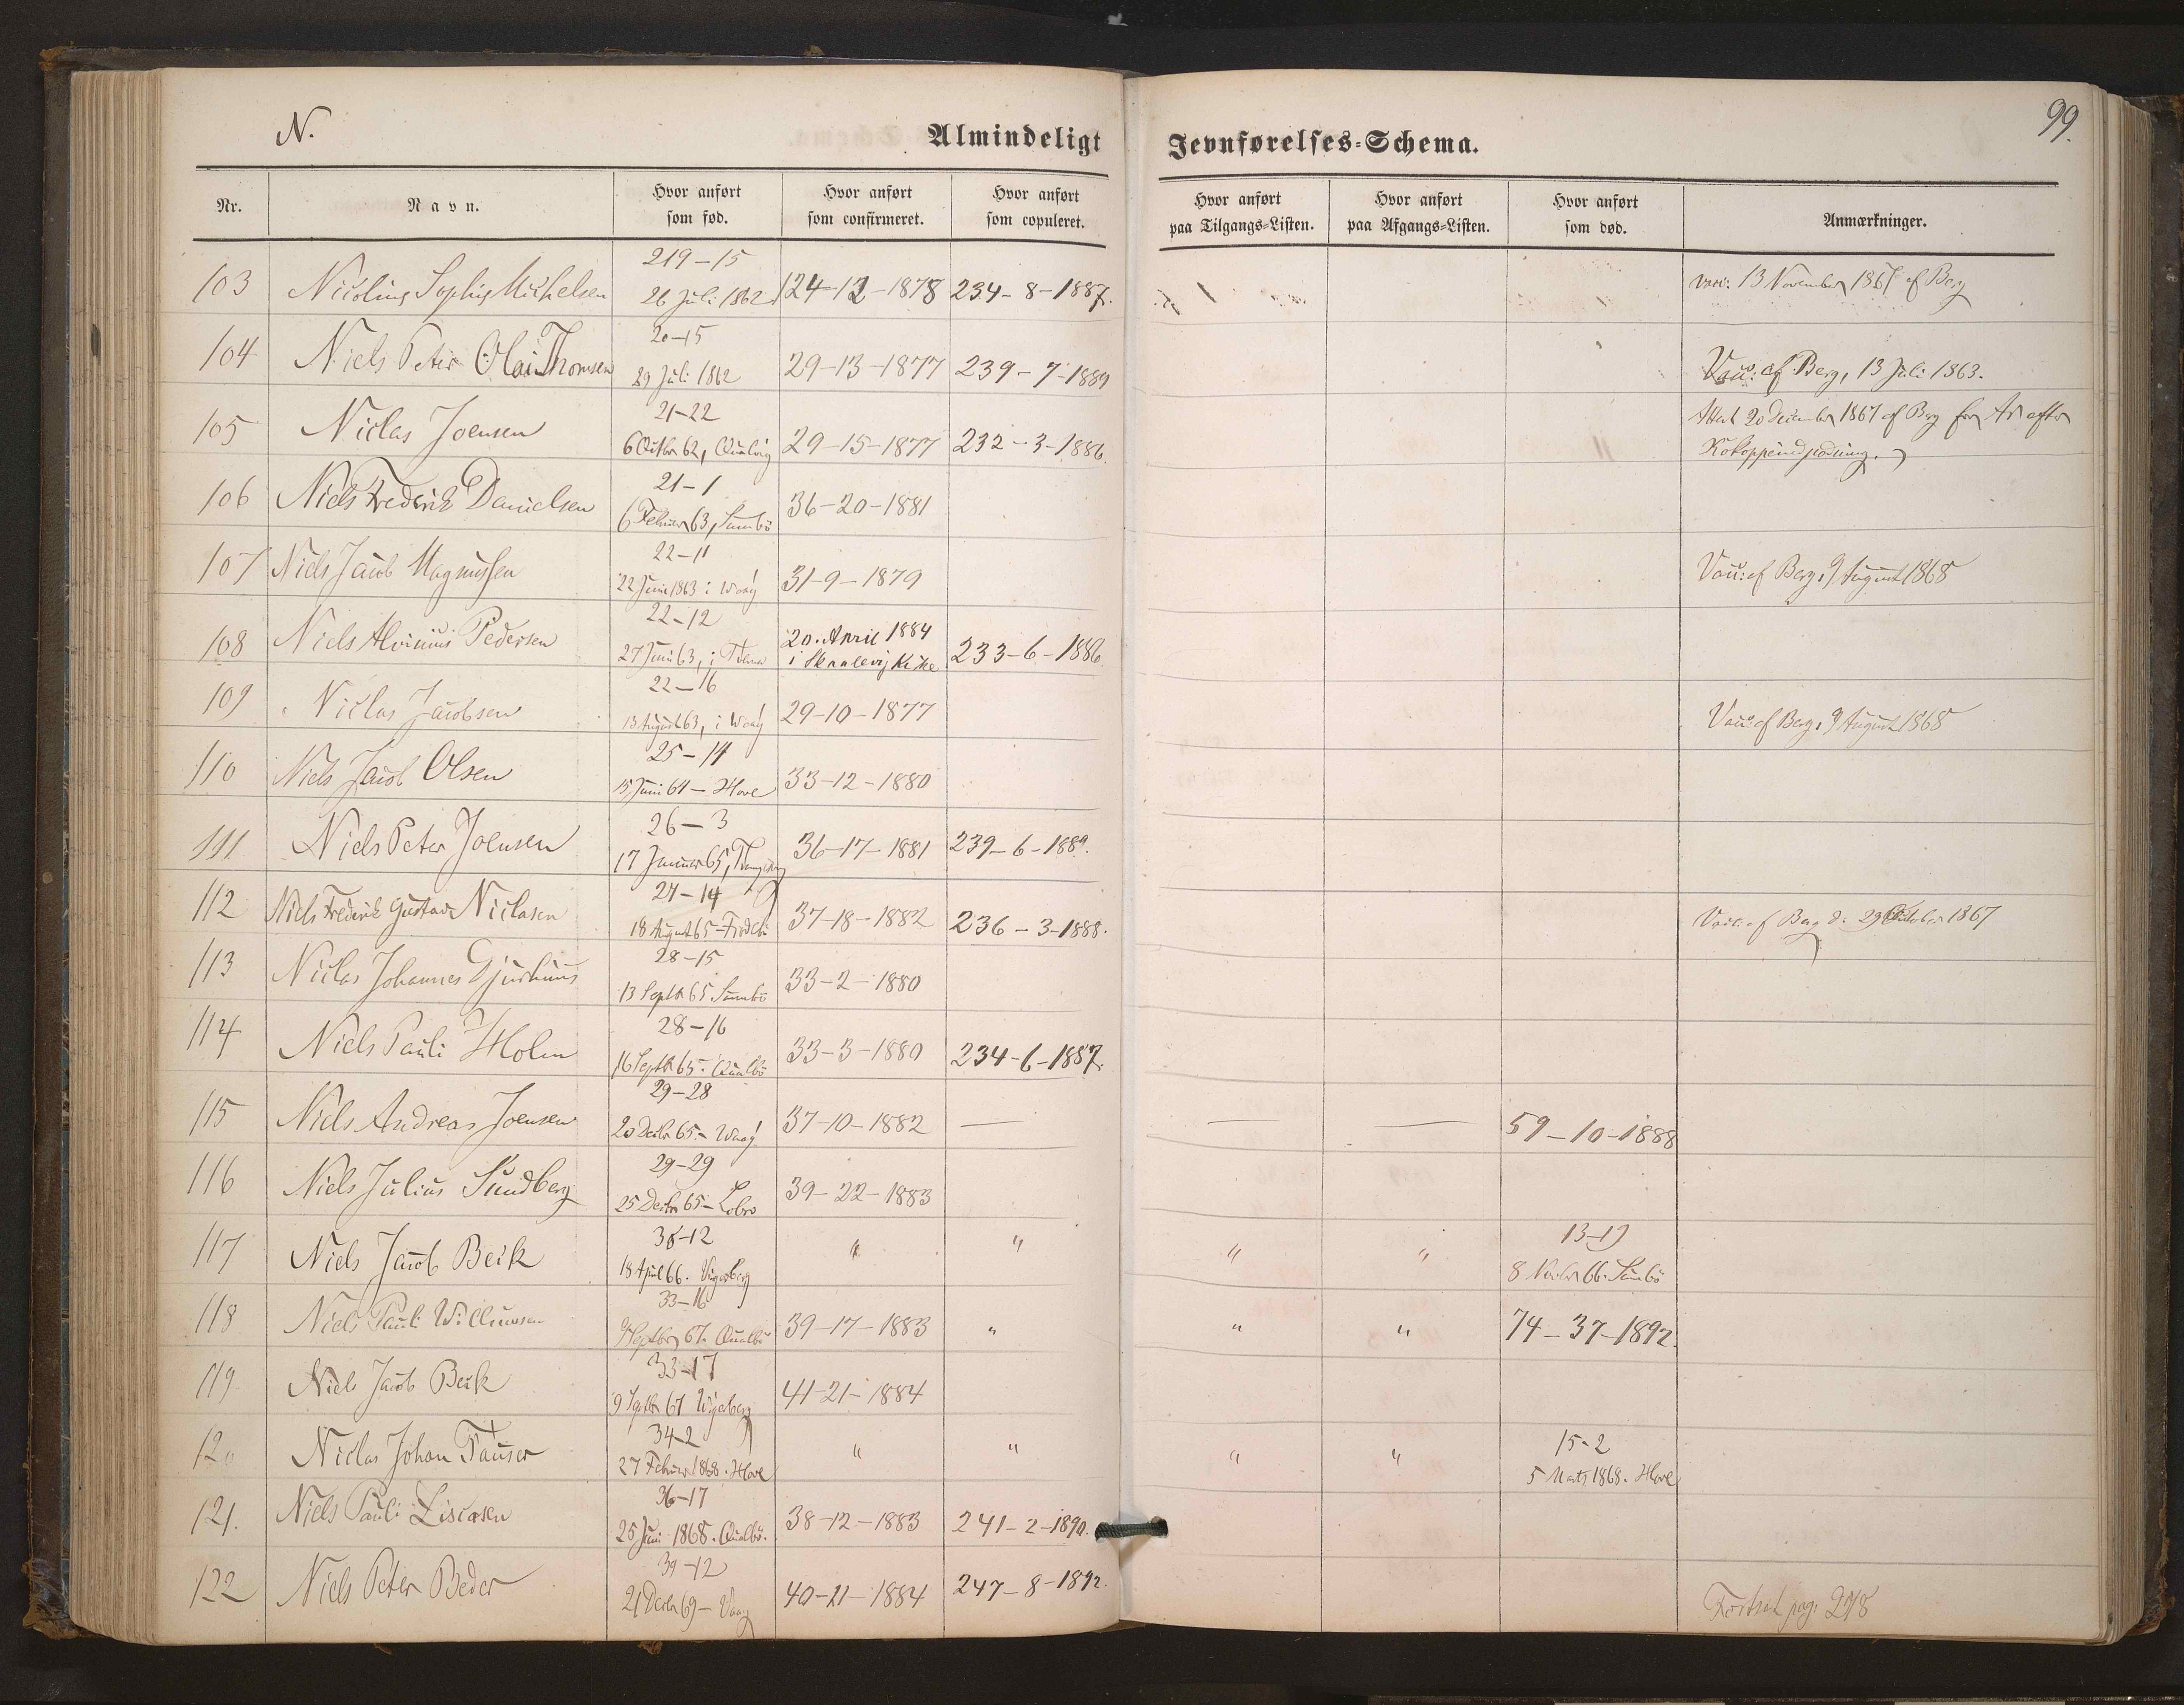 N.
99.
Almindeligt Jevnførelses-Schema.
Nr. Navn. Hvor anført som fød. Hvor anført som confirmeret. Hvor anført som copuleret. Hvor anført paa Tilgangs-Listen. Hvor anført paa Afgangs-Listen. Hvor anført som død. Anmærkninger.
219-15
103 Nicolius Sophus Michelsen 26 Juli 1862 124-12-1878 234-8-1887. vacc: 13 November 1867 af Berg
20-15
104 Niels Peter Olai Thomsen 29 Juli 1862 29-13-1877 239-7-1889 Vacc: af Berg, 13 Juli 1863.
21-22
105 Niclas Joensen 6 Octbr 62, Qualvig 29-15-1877 232-3-1886. Attest 20 December 1867 af Berg for Ar efter
Kokoppeindpodning.
21-1
106 Niels Frederik Danielsen 6 Februar 63, Sumbö 36-20-1881
22-11
107 Niels Jacob Magnussen 22 Juni 1863 i Waag 31-9-1879 Vacc: af Berg, 9 August 1868
22-12
108 Niels Pedersen 27 Juni 63, i 20. April 1884
i Skaalevig Kirke 233-6-1886.
22-16
109 Niclas Jacobsen 13 August 63, i Waag 29-10-1877 Vacc: af Berg, 9 August 1868
25-14
110 Niels Jacob Olsen 15 Juni 64 - Hove 33-12-1880
26-3
111 Niels Peter Joensen 17 Januar 65, 36-17-1881 239-6-1889.
27-14
112 Niels Frederik Gustav Niclasen 18 August 65 - Frodebö 37-18-1882 236-3-1888. Vacc. af Berg d: 29 October 1867
28-15
113 Niclas Johannes Djurhuus 13 Septbr 65. Sumbö 33-2-1880
28-16
114 Niels Pauli Holm 16 Septbr 65. Qualbö 33-3-1880 234-6-1887.
29-28
115 Niels Andreas Joensen 20 Decbr 65. - Waag 37-10-1882 — — — 59-10-1888
29-29
116 Niels Julius Sundberg 25 Decbr 65 - Lobro 39-22-1883
30-12
117 Niels Jacob Beck 18 April 66. Vigarberg " " " " 13-19
8 Novbr 66. Sumbö
33-16
118 Niels Pauli Willumsen 9 Septbr 67. Qualbö 39-17-1883 " " " 74-37-1892.
33-17
119 Niels Jacob Beck 9 Septbr 67 Vigarberg 41-21-1884
34-2
120 Niclas Johan Pauser 27 Februar 1868. Hove " " " " 15-2
5 Marts 1868. Hove
36-17
121. Niels Pauli Liscasen 25 Juni 1868. Qualbö. 38-12-1883 241-2-1890.
39-12
122 Niels Peter Beder 21 Decbr 69 - Vaag 40-11-1884 247-8-1892.
Fortsat pag: 278